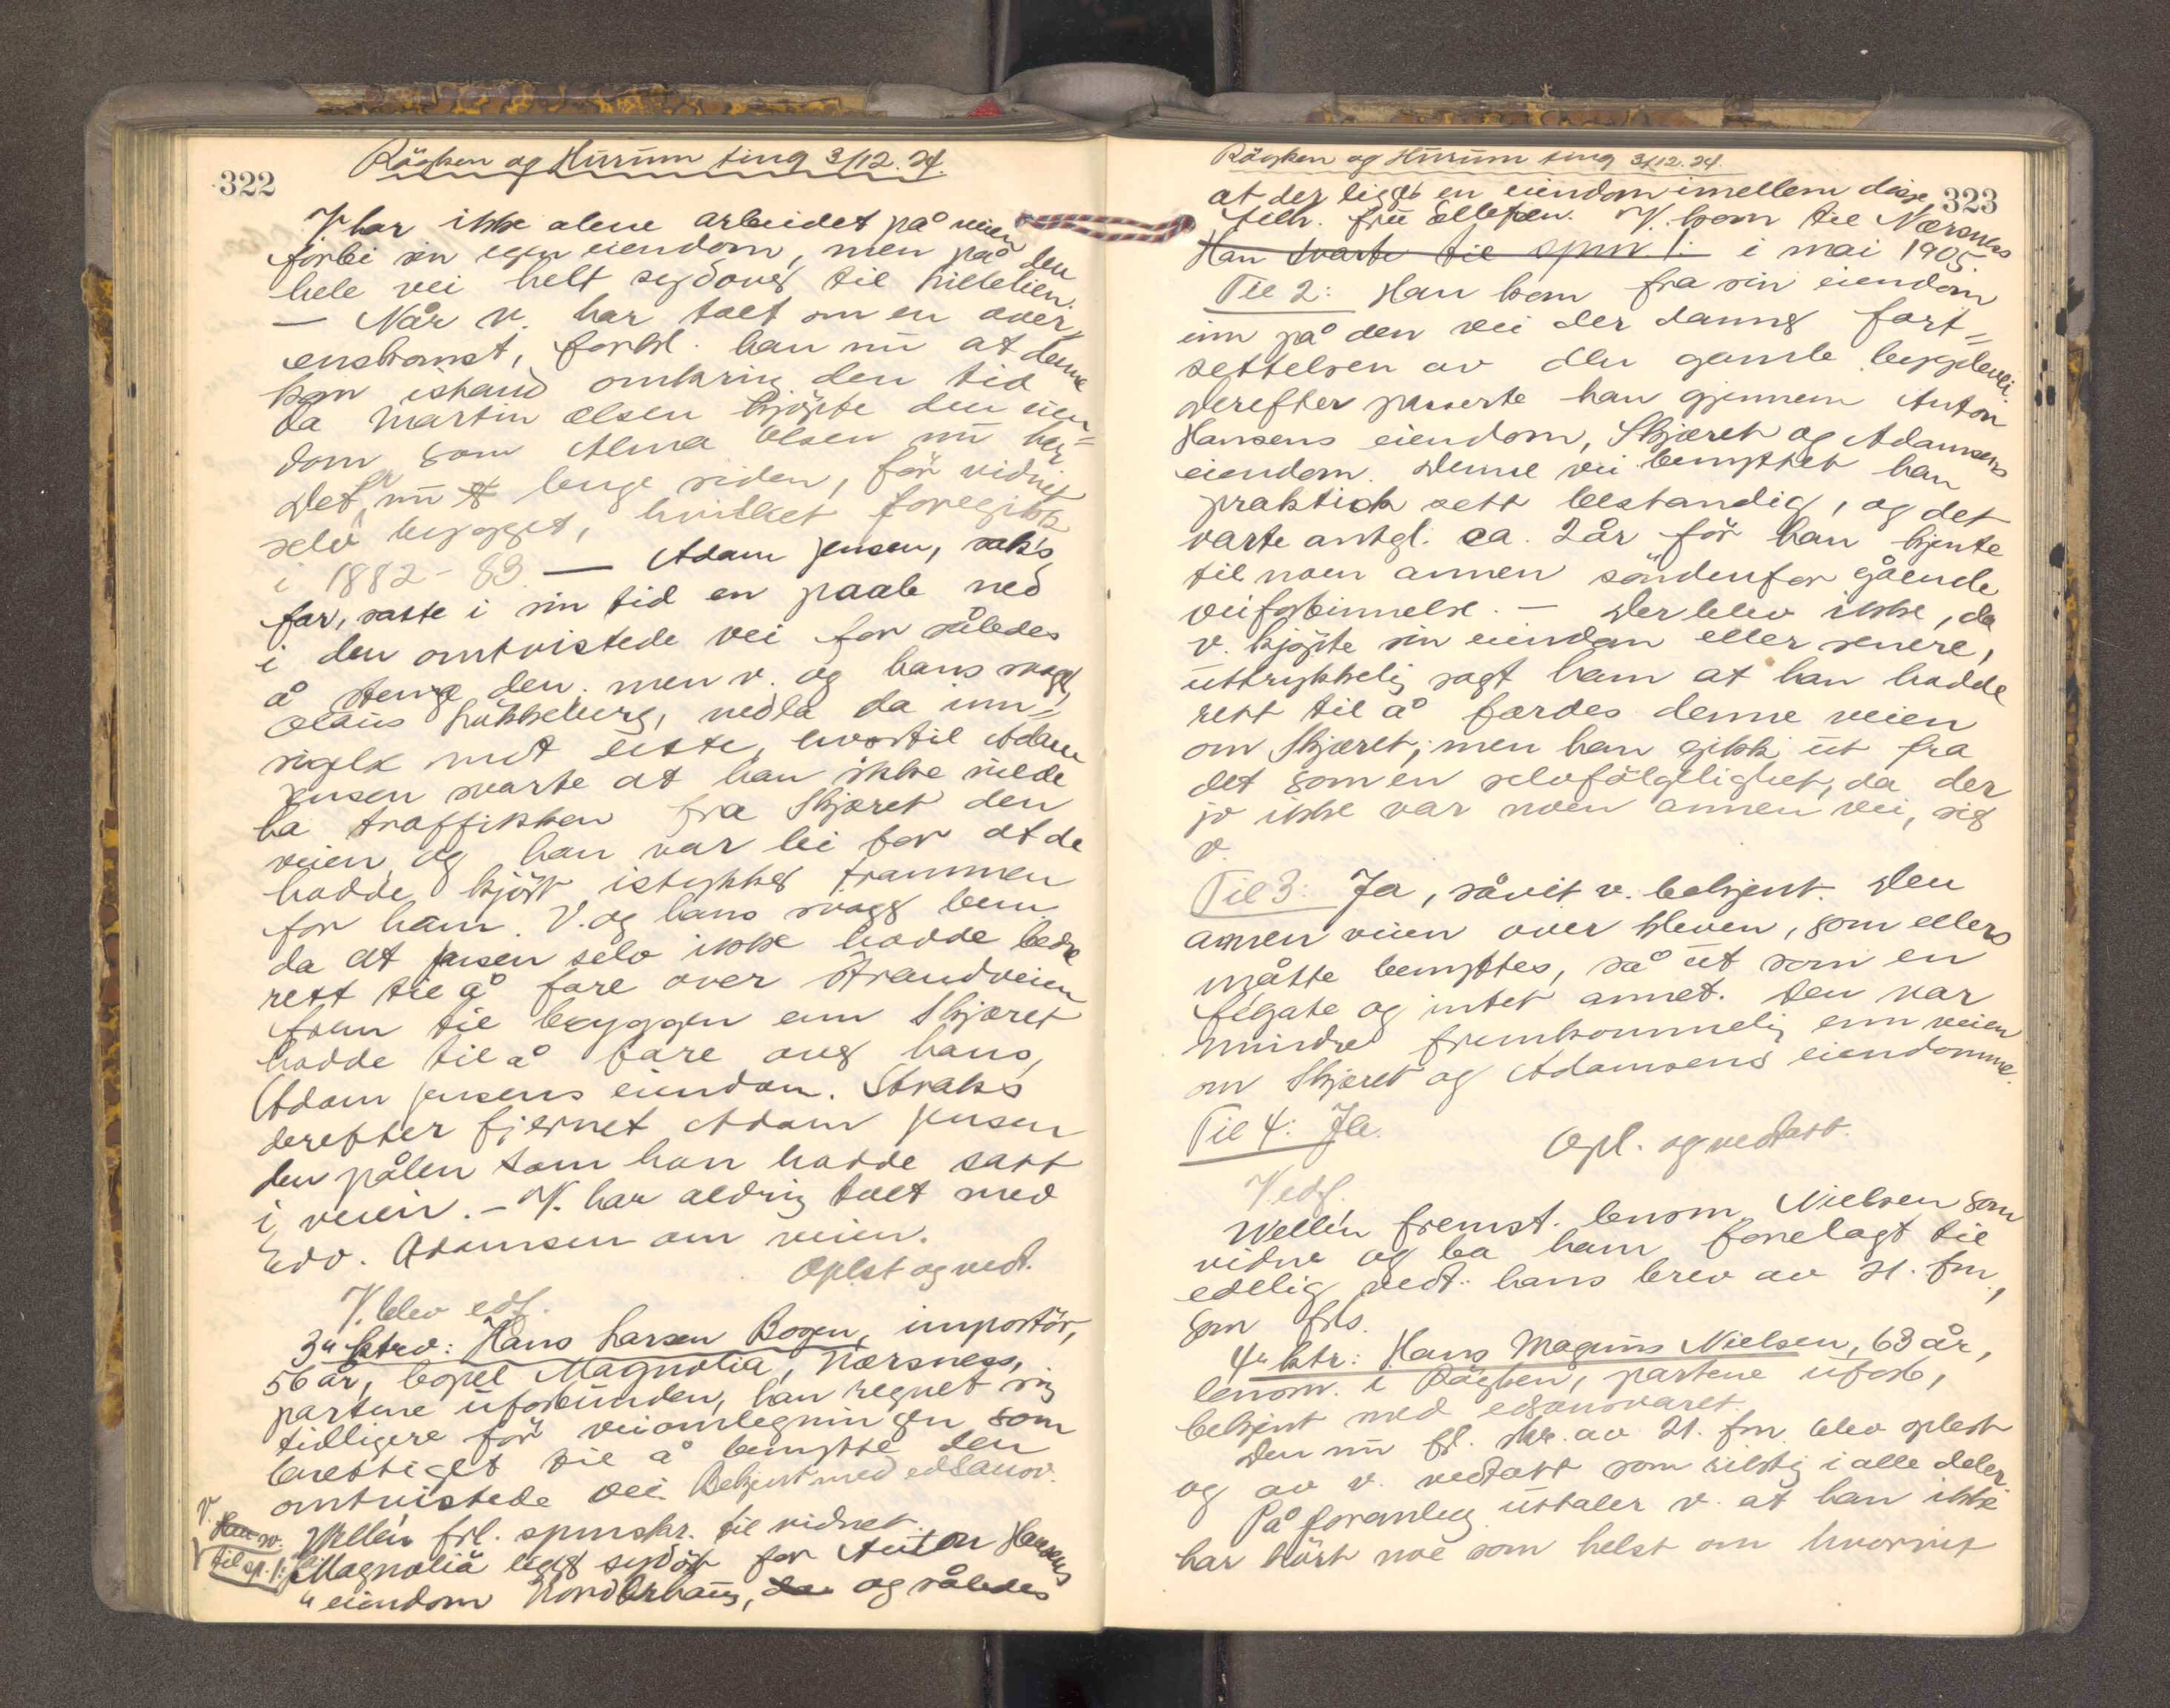 322
Röyken og Hurum ting 3/12. 24.
V. har ikke alene arbeidet på veien
forbi sin egen eiendom, men på den
hele vei helt sydover til Lillelien.
— Når v. har talt om en over-
enskomst, forkl. han nu at denne
kom istand omkring den tid
da Martin Olsen kjöpte den eien=
dom som Alma Olsen nu har
Det er nu lenge siden, för vidnet
selv bygget, hvilket foregikk
i 1882-83. — Adam Jensen, saks.
far, satte i sin tid en paale ned
i den omtvistede vei for således
å stenge den. men v. og hans svoger,
Olaus Lukkeberg, nedla da inn=
sigelse mot dette, hvortil Adam
Jensen svarte at han ikke vilde
ha traffikken fra Skjæret den
veien og han var lei for at de
hadde kjört istykker trammen
for ham. V. og hans svoger bem.
da at Jensen selv ikke hadde bedre
rett til å fare over Strandveien
frem til bryggen enn Skjæret
hadde til å fare over hans,
Adam Jensens eiendom. Straks
derefter fjernet Adam Jensen
den pålen som han hadde satt
i veien. — V. har aldrig talt med
Edv. Adamsen om veien.
Oplest og vedt.
V. blev edf.
3. ktrv: Hans Larsen Bogen, importör,
56 år, bopel Magnolia, Nærsness,
partene uforbunden, han regnet sig
tidligere för veiomlegningen som
berettiget til å benytte den
omtvistede vei. Bekjent med edsansv.
Wellén frl. spmskr. til vidnet.
V. Han sv. til sp. 1: Magnolia ligger syd öst for Anton Hansens
eiendom Nordbrhaug, og således
323
Röyken og Hurum ting 3/12. 24.
at der ligger en eiendom imellem disse,
tilh. fru Ellefsen. V. kom til Nærsness
Han svarte til spm. 1: i mai 1905.
Til 2: Han kom fra sin eiendom
inn på den vei der danner fort=
settelsen av den gamle bygdevei.
Derefter passerte han gjennem Anton
Hansens eiendom, Skjæret og Adamsens
eiendom. Denne vei benyttet han
praktisk sett bestandig, og det
varte antgl. ca. 2 år för han kjente
til noen annen söndenfor gående
veiforbinnelse. — Der blev ikke, da
v. kjöpte sin eiendom eller senere,
uttrykkelig sagt ham at han hadde
rett til å færdes denne veien
om Skjæret; men han gikk ut fra
det som en selvfölgelighet, da der
jo ikke var noen annen vei, sig
v.
Til 3: Ja, såvit v. bekjent. Den
annen veien over Kleven, som ellers
måtte benyttes, så ut som en
fégate og intet annet. Den var
mindre fremkommelig enn veien
om Skjæret og Adamsens eiendomme.
Til 4: Ja.
Opl. og vedtatt.
V. edf.
Wellén fremst. lensm. Nielsen som
vidne og ba ham forelagt til
edelig vedt. hans brev av 21. fm.,
som frls.
4. ktr: Hans Magnus Nielsen, 63 år,
lensm. i Röyken, partene uforb,
bekjent med edsansvaret.
Den nu fl. skr. av 21. fm. blev oplest
og av v. vedtatt som riktig i alle deler.
På foranledn. uttaler v. at han ikke
har hört noe som helst om hvorvidt